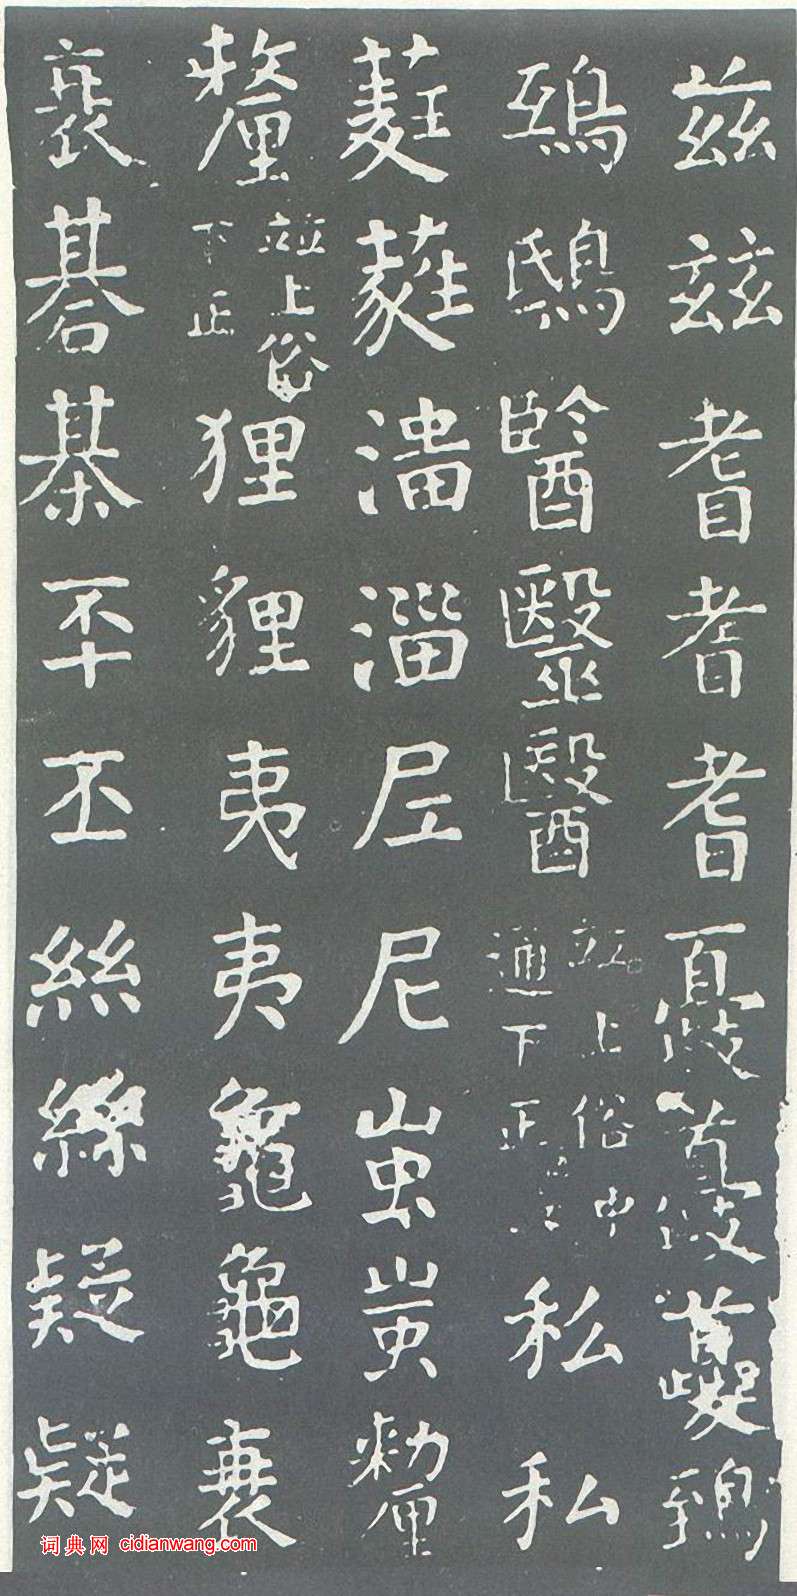 兹玆耆耆耆夔夔夔鵄
鵄鴟毉醫並上俗中通下正私私
蕤蕤淄尼尼蚩蚩
釐並上俗下正狸貍夷夷龜龜衰
衰碁棊㔻丕絲疑疑
词典网 cidianwang.com